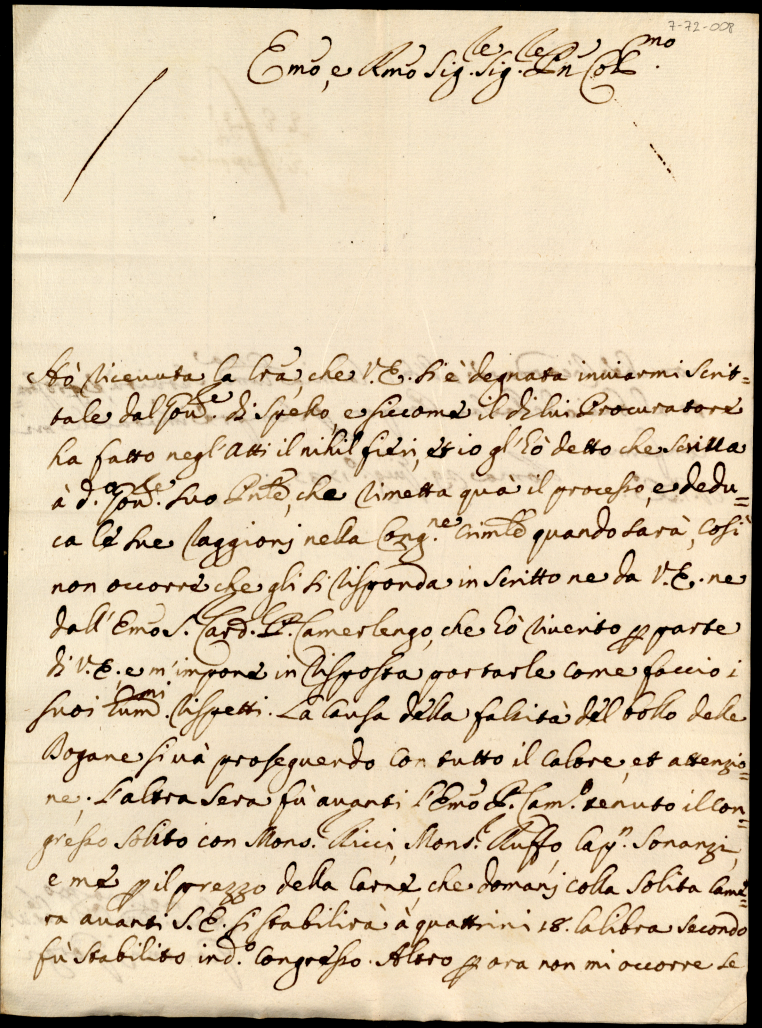 7-72-008
Emo, e Rmo Sig.re Sig.re Pn Colmo.
Hò riceuuta la lrã, che V.E. si è degnata inuiarmi scrit=
tale dal Gou.re di Spello, e siccome il di lui Procuratore
ha fatto negl'Atti il nihil fieri, et io gl'hò detto che scriua
à d.o Gou.re suo Prñle, che rimetta quà il processo, e dedu=
ca le sue raggioni nella Cong.ne Crimle quando sarà, così
non occorre che gli si risponda in scritto ne da V.E. ne
dall'Emo S. Card. P. Camerlengo, che hò riuerito p parte
di V.E. e m'impone in risposta portarle come faccio i
suoi hum.mi rispetti. La Causa della falsità del bollo delle
Dogane si uà proseguendo con tutto il Calore, et attenzio=
ne. L'altra sera fù auanti l'Emo P. Cam.o tenuto il Con=
gresso solito con Mons.r Ricci, Mons.r Ruffo, Cap.n Sonanzi,
e me p il prezzo della Carne, che domani colla solita Came=
ra auanti S.E. si stabilirà à quattrini 18. la libra secondo
fù stabilito in d.o Congresso. Altro p ora non mi occorre se